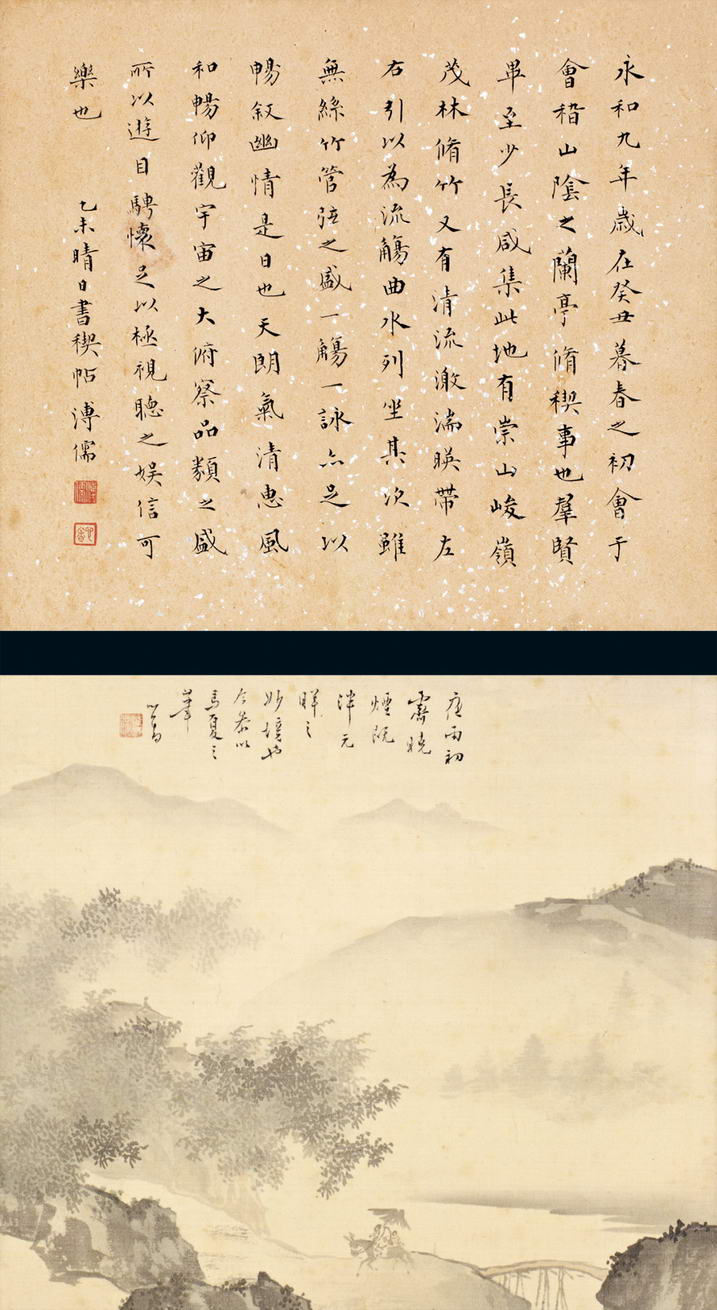 永和九年歲在癸丑暮春之初會于
會稽山陰之蘭亭脩稧事也羣賢
畢至少長咸集此地有崇山峻嶺
茂林脩竹又有清流激湍暎帶左
右引以為流觴曲水列坐其次雖
無絲竹管弦之盛一觴一詠亦足以
暢叙幽情是日也天朗氣清惠風
和暢仰觀宇宙之大俯察品類之盛
所以遊目騁懷足以極視聽之娛信可
樂也 乙未晴日書稧帖 溥儒
夜雨初
霽曉
煙既
泮元
暉之
妙境也
今参以
馬夏之
筆
心畬